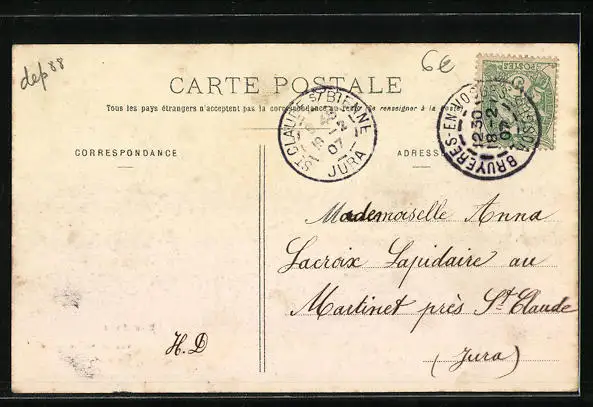 dep 88
6€
CARTE POSTALE
Tous les pays étrangers n'acceptent pas la correspondance au recto (Se renseigner à la poste)
CORRESPONDANCE
ADRESSE
ST CLAUDE S/ BIENNE
19 - 2
07
JURA
BRUYERES-EN-VOSGES
12 30
18 - 2
07
POSTES
Mademoiselle Anna
Lacroix Lapidaire au
Martinet près St Claude
(Jura)
H.D